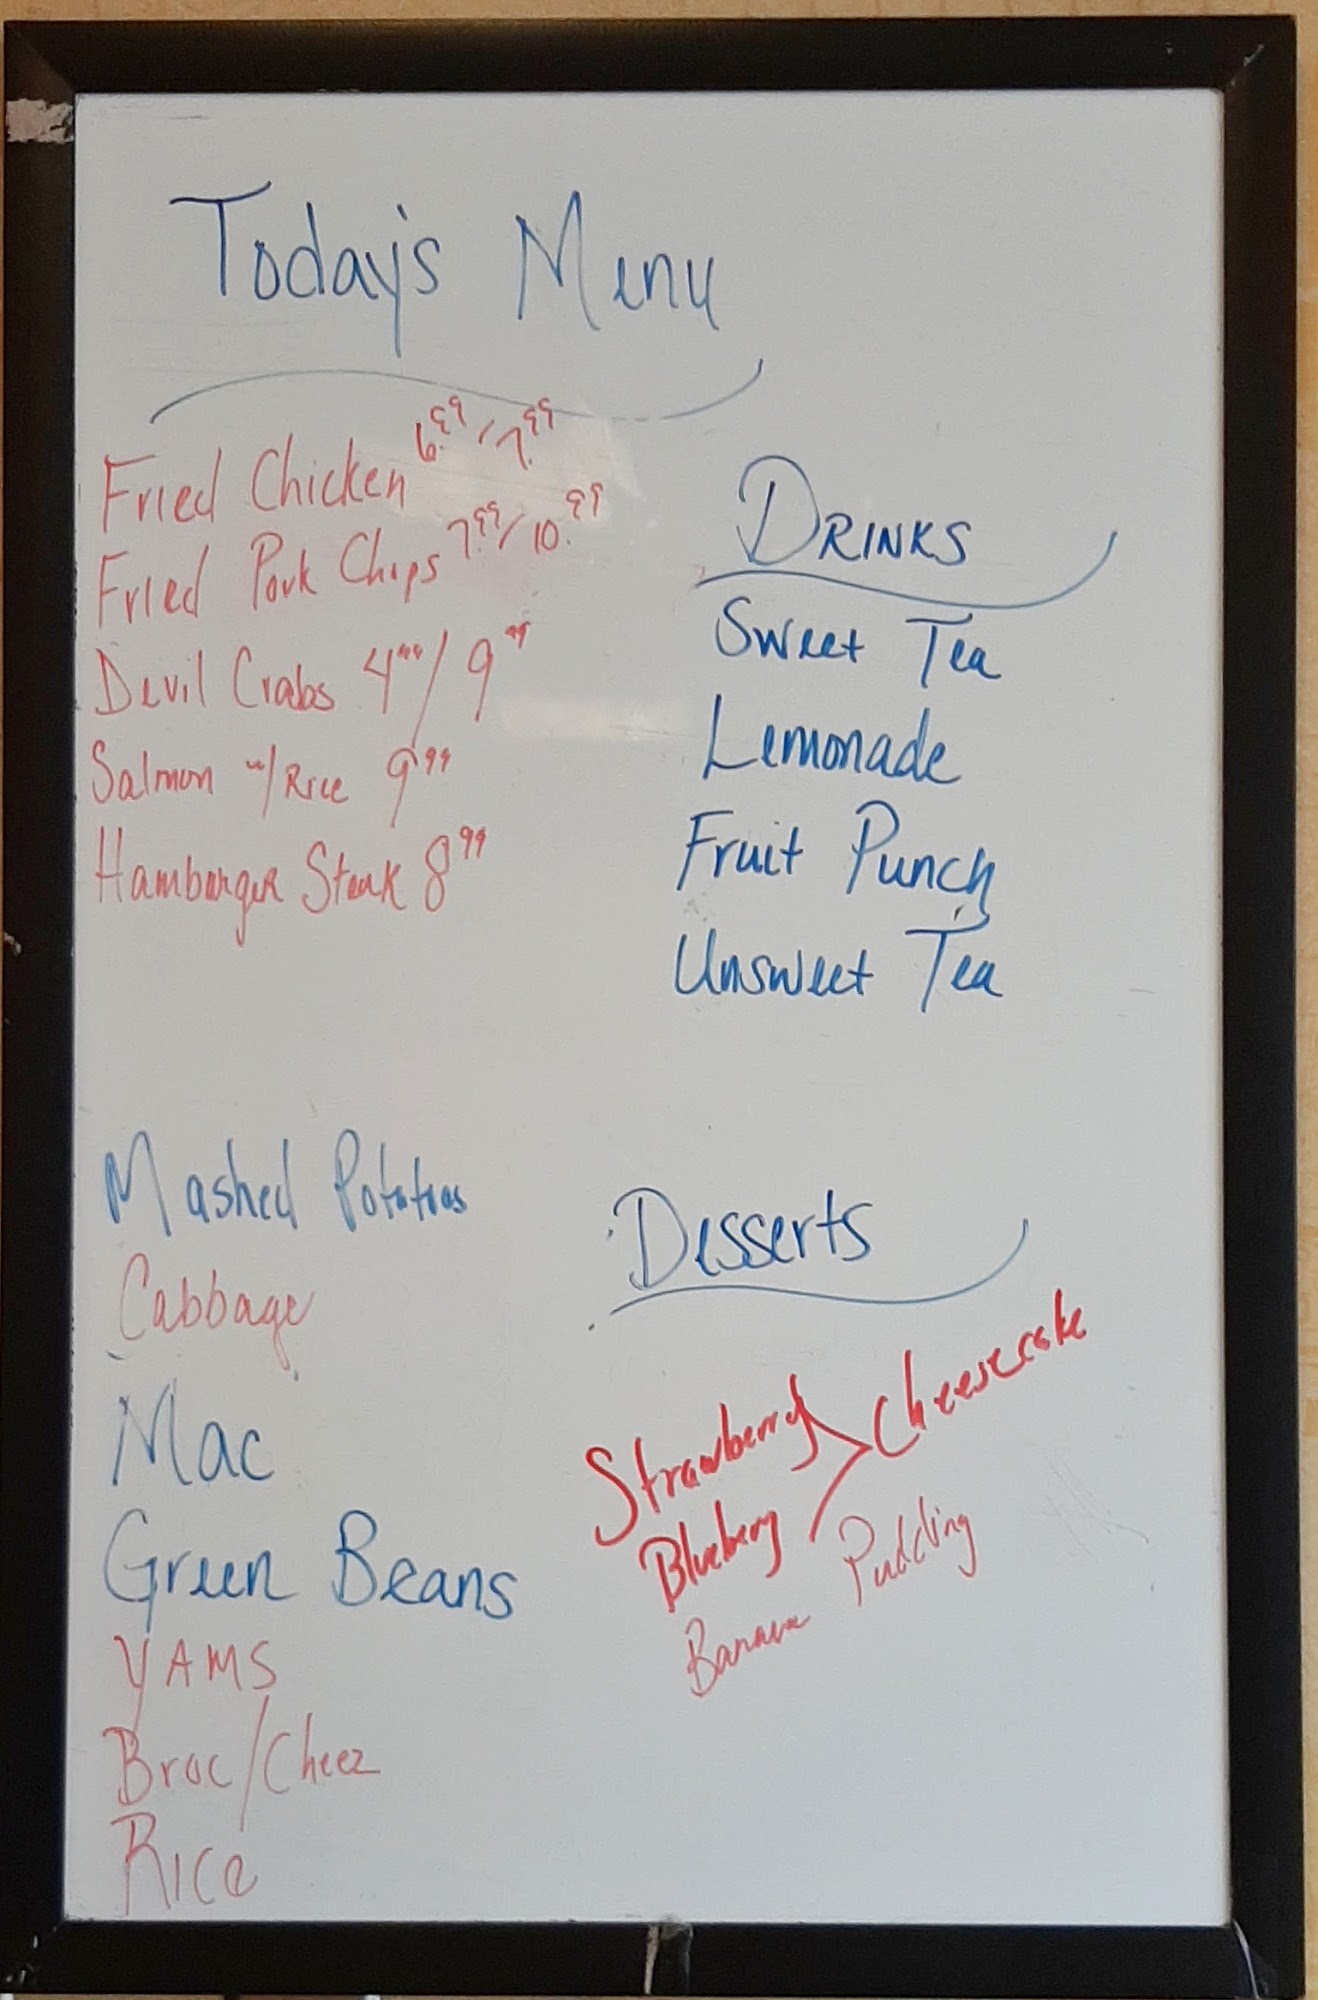 Today's Menu
Fried Chicken 6.99/7.99
Fried Pork Chops 7.99/10.99
Devil Crabs 4.99/9.99
Salmon w/Rice 9.99
Hamburger Steak 8.99
DRINKS
Sweet Tea
Lemonade
Fruit Punch
Unsweet Tea
Mashed Potatoes
Cabbage
Mac
Green Beans
YAMS
Broc/Cheez
Rice
Desserts
Strawberry
Blueberry
Cheesecake
Banana Pudding